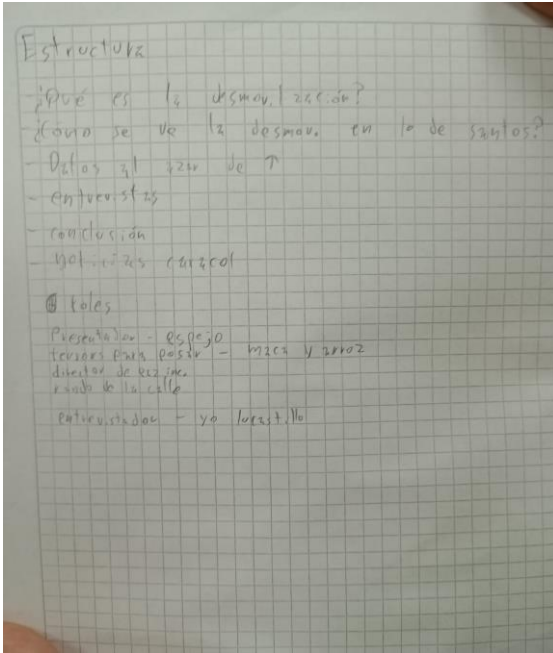 Estructura
- ¿Qué es la desmovilización?
- ¿Cómo se ve la desmov. en lo de santos?
- Datos al azar de ↑
- entrevistas
- conclusión
- noticias caracol
roles
Presentador - espejo
para - maca y arroz
director de
de la calle
entrevistador - yo lucastillo